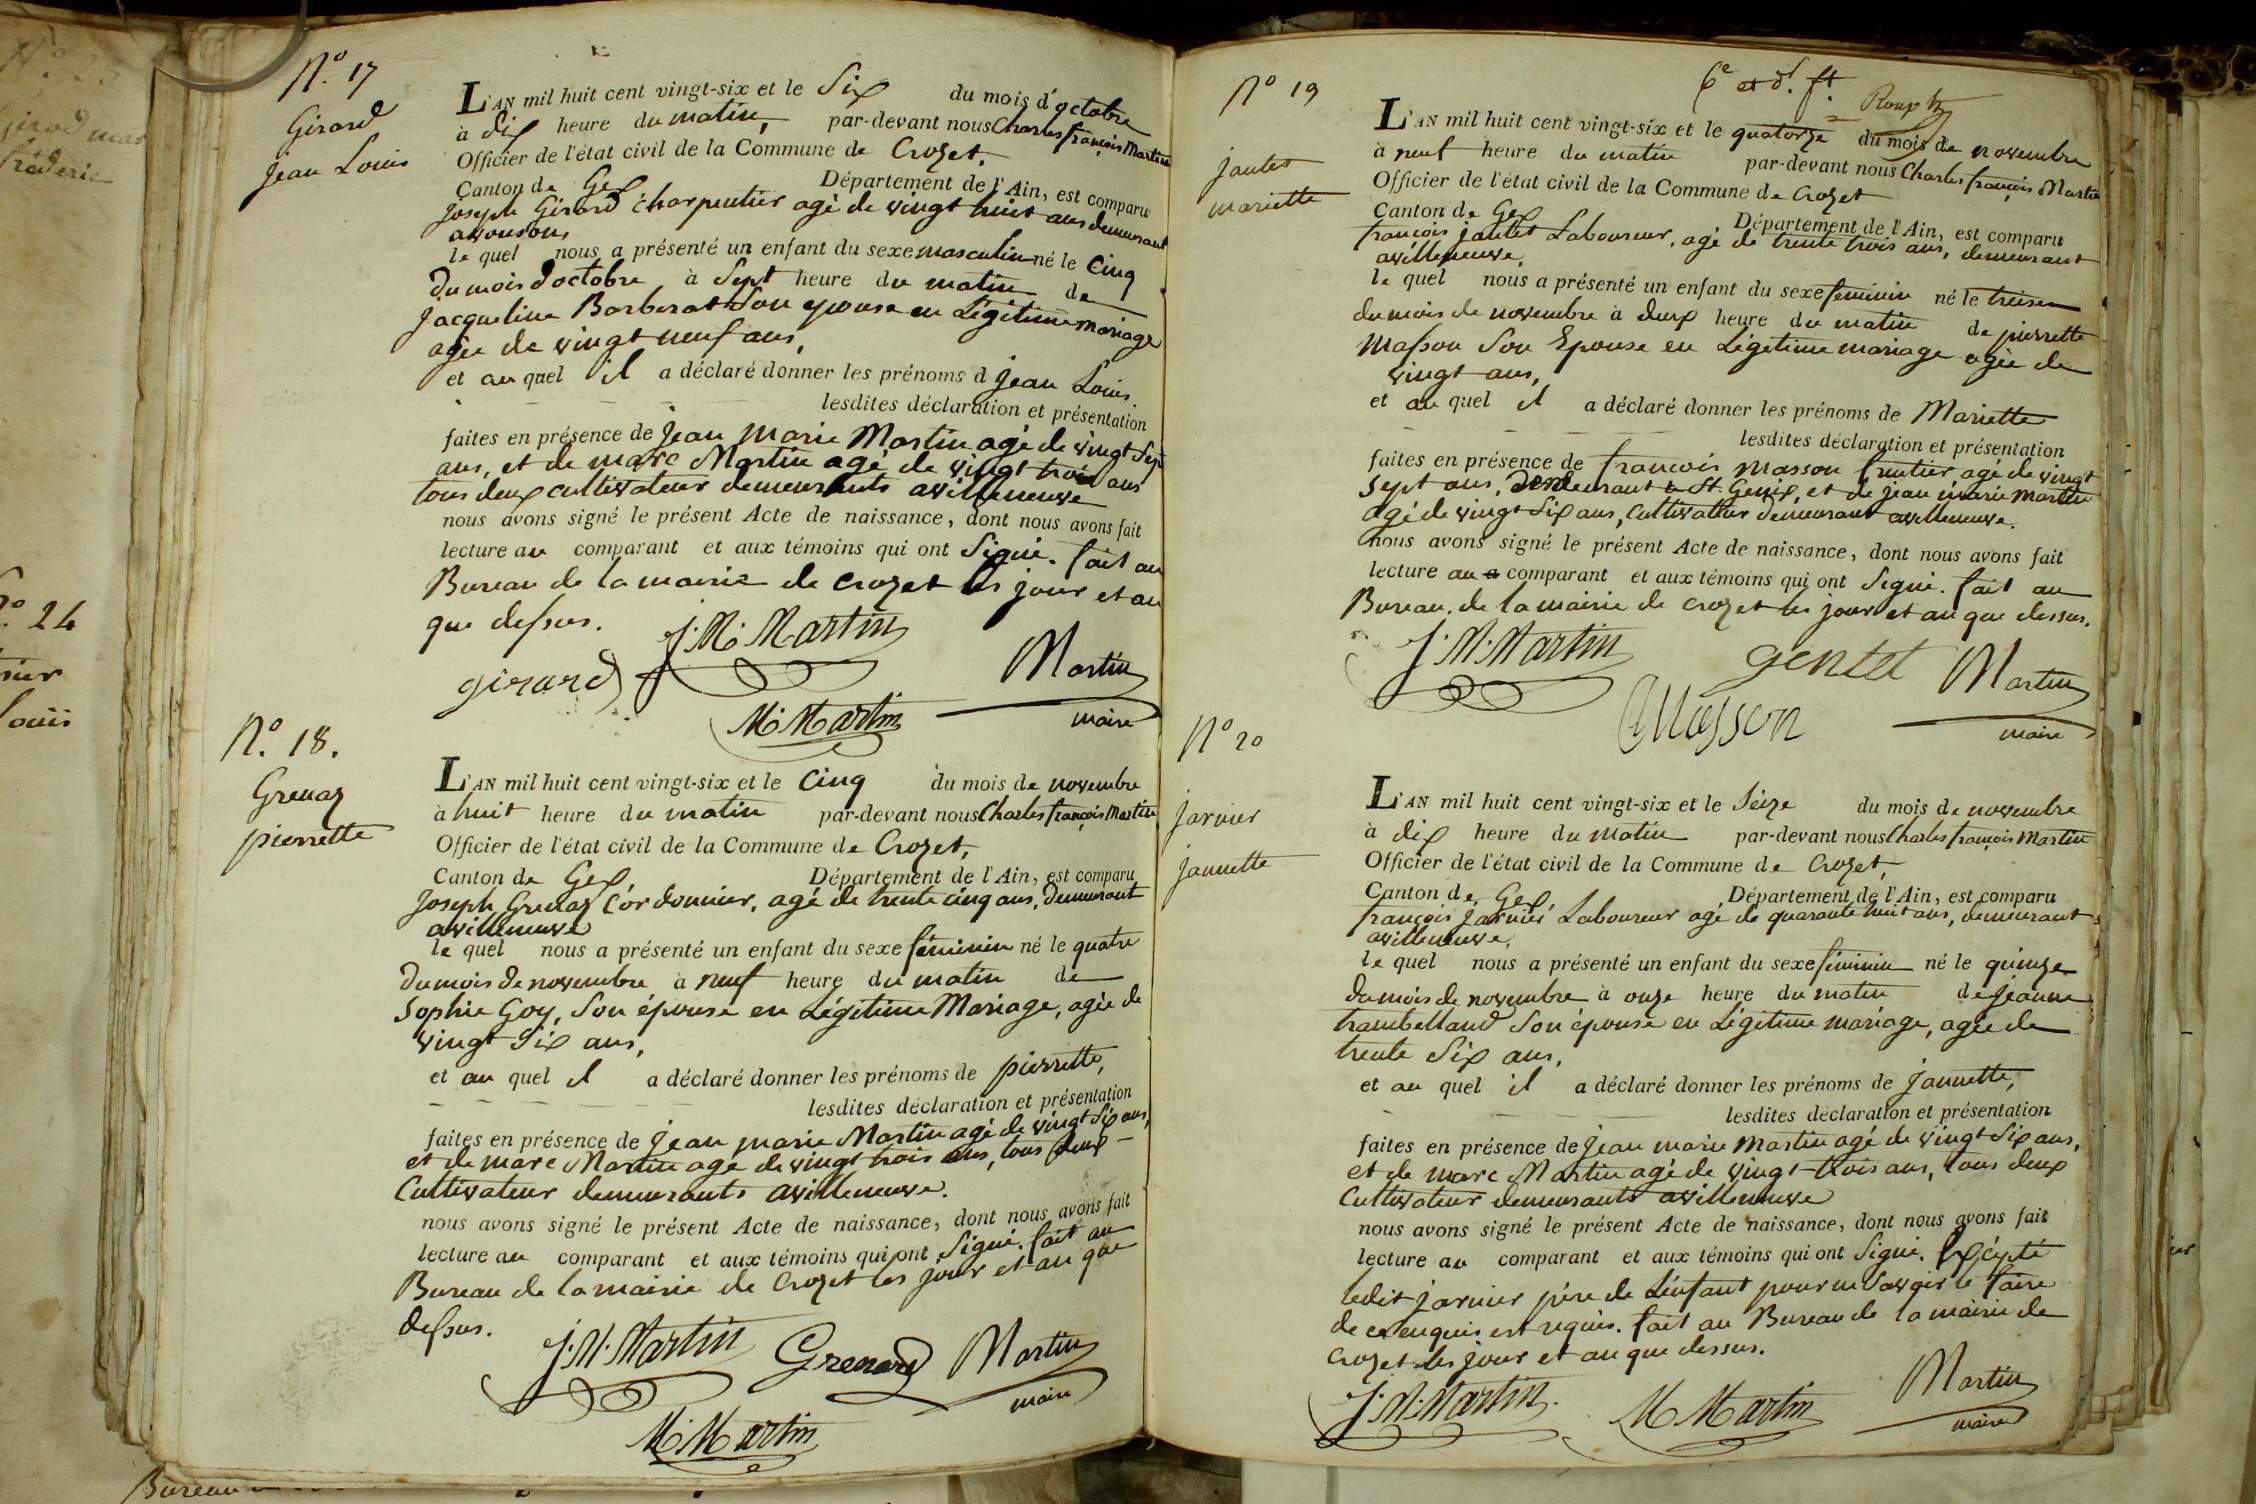 N.º 17
Girard
Jean Louis
L'AN mil huit cent vingt-six et le Six du mois d'octobre
à dix heure du matin, par-devant nous Charles françois Martin
Officier de l'état civil de la Commune de Crozet,
Canton de Gex Département de l'Ain, est comparu
Joseph Girard charpentier agé de vingt huit ans demeurant
avouzons
le quel nous a présenté un enfant du sexe masculin né le Cinq
du mois d'octobre à Sept heure du matin de
Jacqueline Barberat Son epouse en Légitime mariage
agée de vingt neuf ans,
et au quel il a déclaré donner les prénoms d Jean Louis
lesdites déclaration et présentation
faites en présence de Jean Marie Martin agé de vingt Sept
ans, et de marc Martin agé de vingt trois ans
tous deux cultivateur demeurants avilleneuve
nous avons signé le présent Acte de naissance, dont nous avons fait
lecture au comparant et aux témoins qui ont Signé. fait au
Bureau de la mairie de Crozet les jour et an
que dessus.
J. M. Martin
girard
Martin
maire
M. Martin
N.º 18.
Grenaz
pierrette
L'AN mil huit cent vingt-six et le Cinq du mois de novembre
à huit heure du matin par-devant nous Charles françois Martin
Officier de l'état civil de la Commune de Crozet,
Canton de Gex Département de l'Ain, est comparu
Joseph Grenaz Cordonnier, agé de trente cinq ans, Demeurant
avilleneuve
le quel nous a présenté un enfant du sexe féminin né le quatre
du mois de novembre à neuf heure du matin de
Sophie Goy, Son épouse en Légitime Mariage, agée de
vingt Six ans,
et au quel il a déclaré donner les prénoms de pierrette,
lesdites déclaration et présentation
faites en présence de Jean marie Martin agé de vingt Six ans,
et de marc Martin agé de vingt trois ans, tous deux
Cultivateur demeurants avilleneuve.
nous avons signé le présent Acte de naissance, dont nous avons fait
lecture au comparant et aux témoins qui ont Signé. fait au
Bureau de la mairie de Crozet les jour et an que
dessus.
J. M. Martin
Grenard
Martin
maire
M. Martin
6e et dr. ft.
N.º 19
jantet
mariette
L'AN mil huit cent vingt-six et le quatorze du mois de novembre
à neuf heure du matin par-devant nous Charles françois Martin
Officier de l'état civil de la Commune de Crozet
Canton de Gex Département de l'Ain, est comparu
françois jantet Laboureur, agé de trente trois ans, demeurant
avilleneuve,
le quel nous a présenté un enfant du sexe féminin né le treize
du mois de novembre à deux heure du matin de pierrette
Masson Son Epouse en Légitime mariage agée de
vingt ans,
et au quel il a déclaré donner les prénoms de Mariette
lesdites déclaration et présentation
faites en présence de francois Masson fruitier agé de vingt
Sept ans, Demeurant a St. Genix, et de jean marie martin
agé de vingt Six ans, Cultivateur demeurant avilleneuve.
nous avons signé le présent Acte de naissance, dont nous avons fait
lecture au comparant et aux témoins qui ont Signé. fait au
Bureau, de la mairie de Crozet les jour et an que dessus.
J. M. Martin
gentet
Martin
maire
Masson
N.º 20
jarnier
jannette
L'AN mil huit cent vingt-six et le Seize du mois de novembre
à dix heure du matin par-devant nous Charles françois Martin
Officier de l'état civil de la Commune de Crozet,
Canton de Gex, Département de l'Ain, est comparu
françois jarnier Laboureur agé de quarante huit ans, demeurant
avilleneuve,
le quel nous a présenté un enfant du sexe féminin né le quinze
du mois de novembre à onze heure du matin de Jeanne
trambelland Son épouse en Légitime mariage, agée de
trente Six ans,
et au quel il a déclaré donner les prénoms de jannette,
lesdites déclaration et présentation
faites en présence de jean marie Martin agé de vingt Six ans,
et de marc Martin agé de vingt-trois ans, tous deux
Cultivateur demeurants avilleneuve
nous avons signé le présent Acte de naissance, dont nous avons fait
lecture au comparant et aux témoins qui ont Signé. Excépté
ledit jarnier père de L'enfant pour ne Savoir le faire
de ce enquis est requis. fait au Bureau de la mairie de
Crozet les jour et an que dessus.
J. M. Martin.
M Martin
Martin
maire